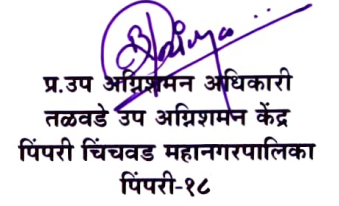 प्र.उप अग्निशमन अधिकारी
तळवडे उप अग्निशमन केंद्र
पिंपरी चिंचवड महानगरपालिका
पिंपरी-१८